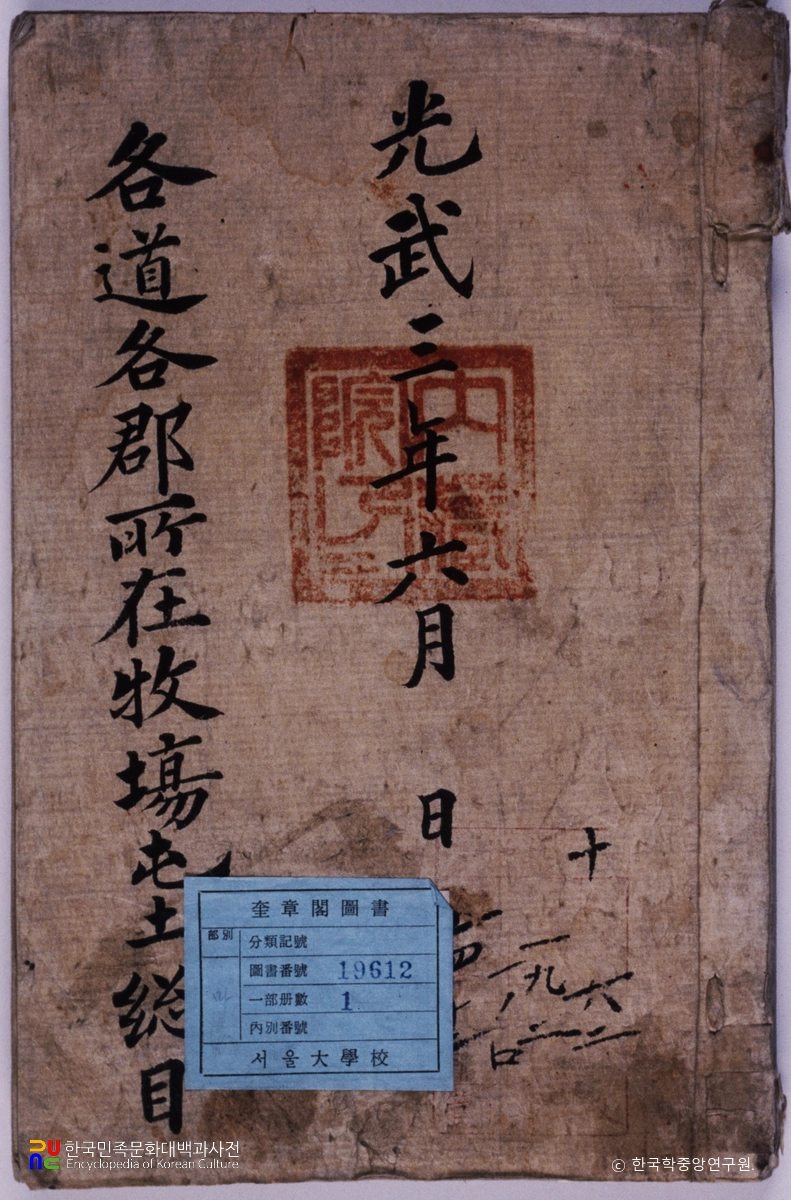 光武三年六月 日
各道各郡所在牧塲屯土総目
內藏院印
十
一九六一二
奎章閣圖書
部別
分類記號
圖書番號 19612
一部册數 1
內別番號
서울大學校
한국민족문화대백과사전
Encyclopedia of Korean Culture
© 한국학중앙연구원